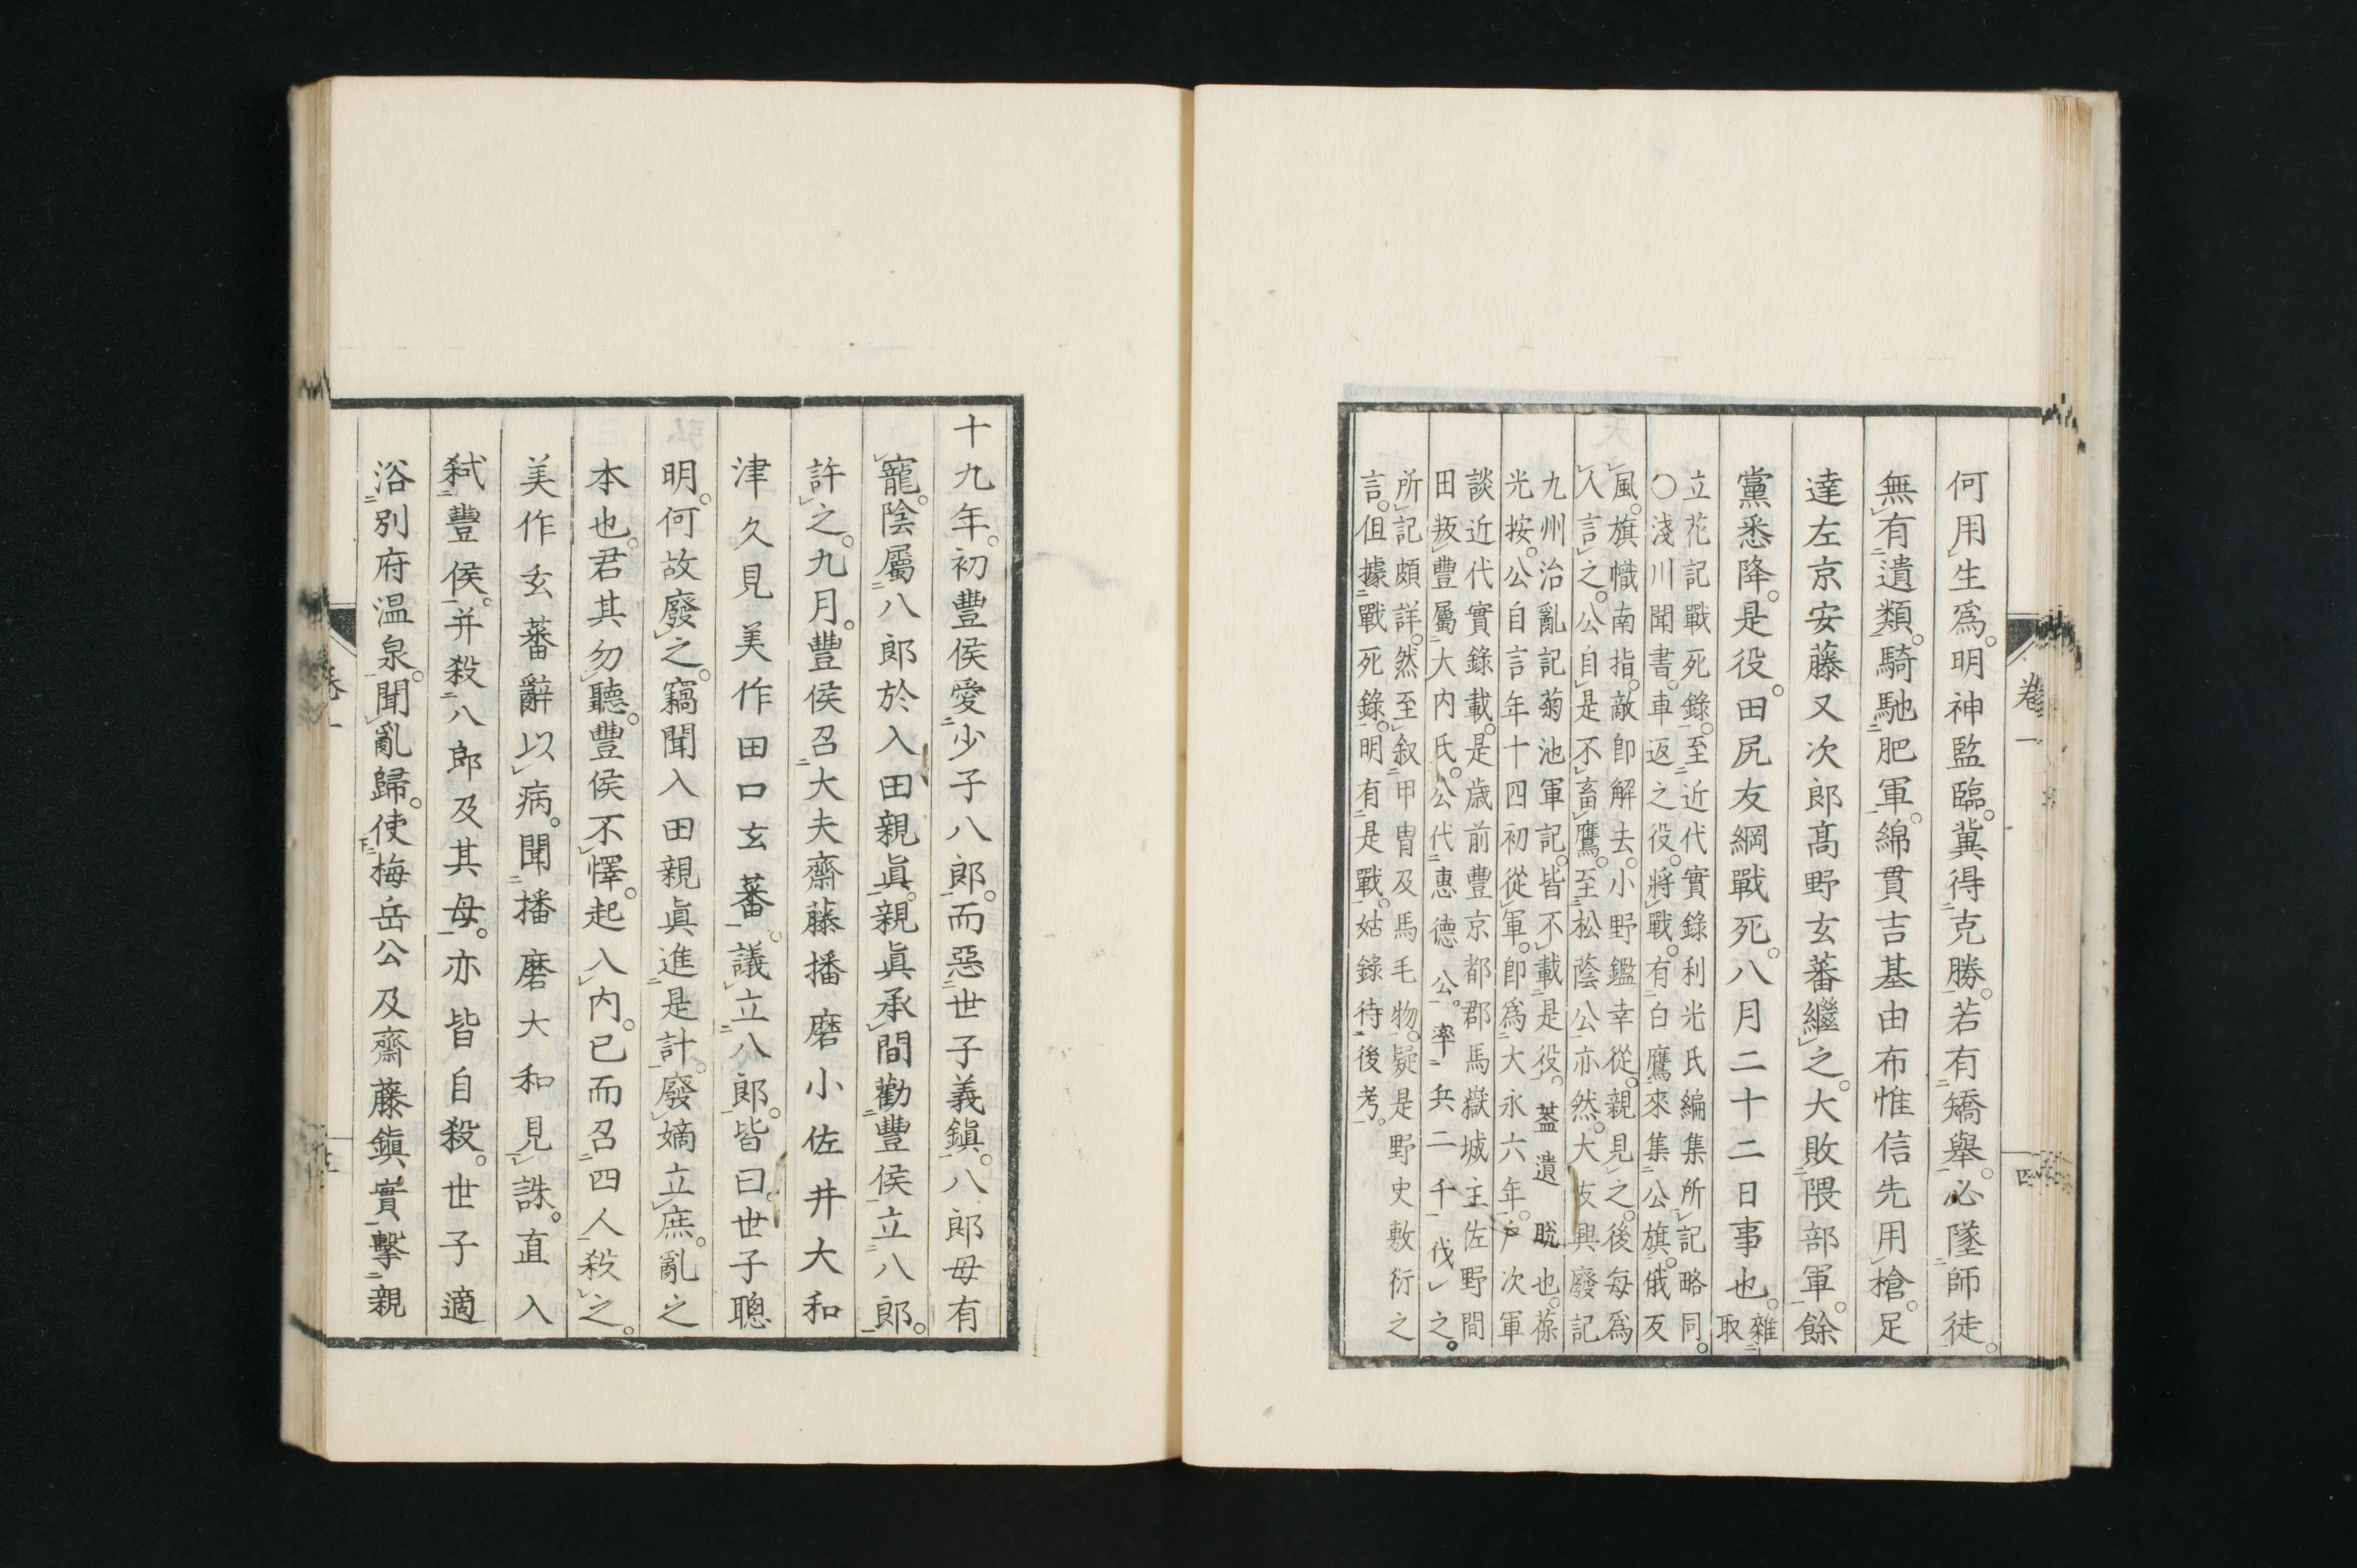 卷一
四
何用生爲。明神監臨。冀得克勝。若有矯舉。必墜師徒。
無有遺類。騎馳肥軍。綿貫吉基由布惟信先用槍。足
達左京安藤又次郎髙野玄蕃繼之。大敗隈部軍。餘
黨悉降。是役。田尻友綱戰死。八月二十二日事也。雜取
立花記戰死錄。至近代實錄利光氏編集所記略同。
○淺川聞書。車返之役。將戰。有白鷹來集公旗。俄反
風。旗幟南指。敵卽解去。小野鑑幸從。親見之。後每爲
人言之。公自是不畜鷹。至松蔭公亦然。大友興廢記
九州治亂記菊池軍記。皆不載是役。葢遺脫也。葆
光按。公自言年十四初從軍。卽爲大永六年。戶次軍
談近代實錄載。是歳前豐京都郡馬嶽城主佐野間
田叛豐屬大内氏。公代惠德公。率兵二千伐之。
所記頗詳。然至叙甲冑及馬毛物。疑是野史敷衍之
言。但據戰死錄。明有是戰。姑錄待後考。
十九年。初豐侯愛少子八郎。而惡世子義鎭。八郎母有
寵。陰屬八郎於入田親眞。親眞承間勸豐侯立八郎。
許之。九月。豐侯召大夫齋藤播磨小佐井大和
津久見美作田口玄蕃。議立八郎。皆曰。世子聰
明。何故廢之。竊聞入田親眞進是計。廢嫡立庶。亂之
本也。君其勿聽。豐侯不懌。起入内。已而召四人殺之。
美作玄蕃辭以病。聞播磨大和見誅。直入
弑豐侯。并殺八郎及其母。亦皆自殺。世子適
浴別府温泉。聞亂歸。使梅岳公及齋藤鎭實擊親
卷一